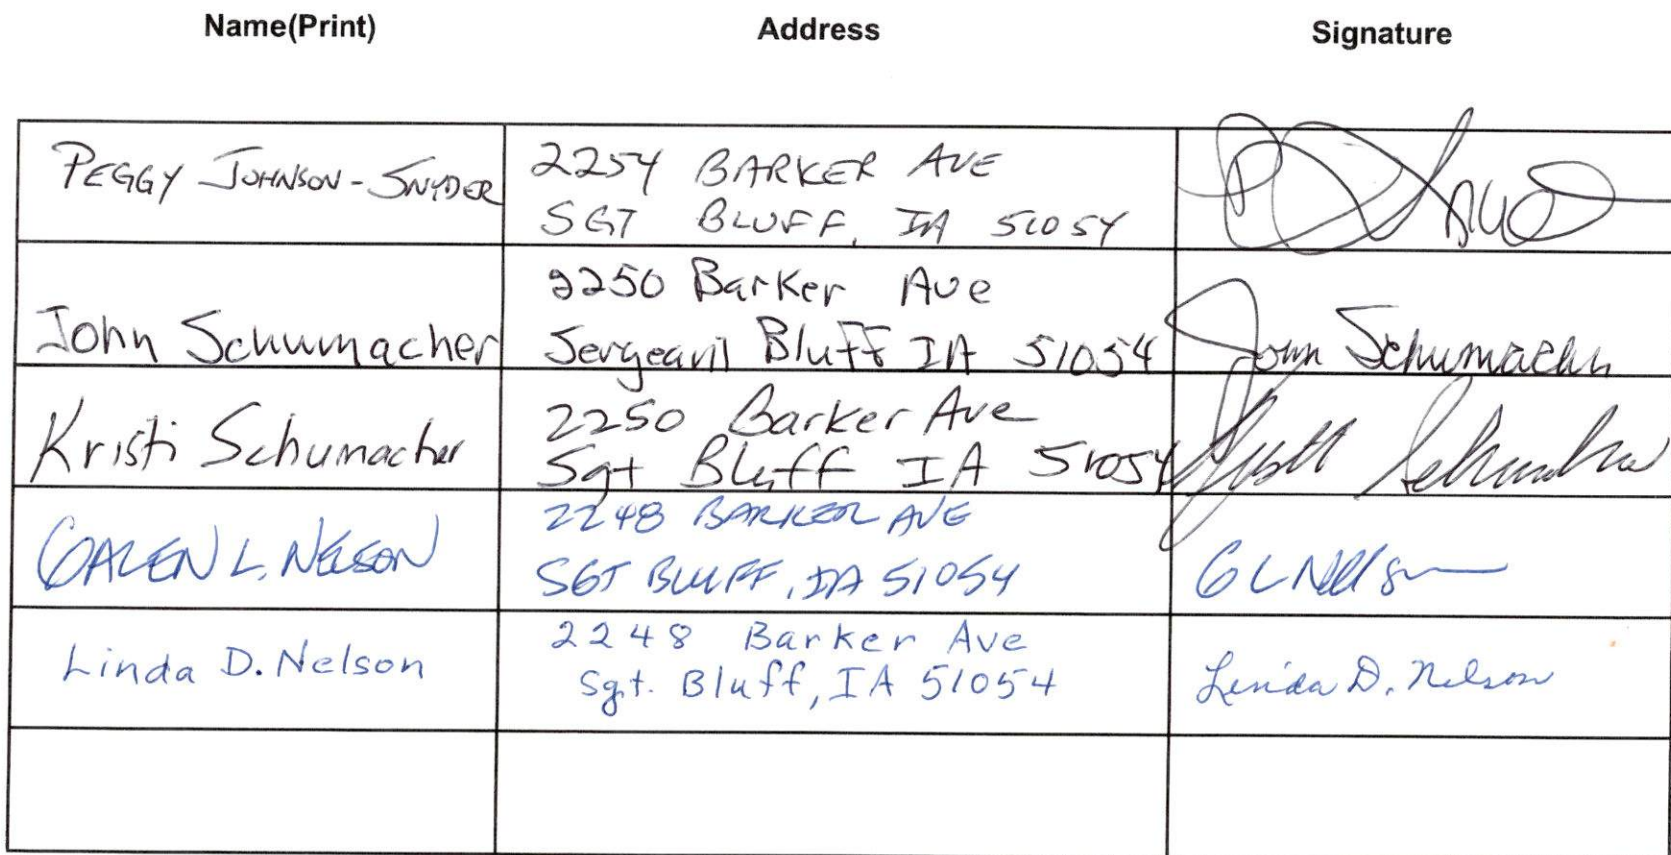 Name(Print) Address Signature
PEGGY JOHNSON-SNYDER
2254 BARKER AVE
SGT BLUFF, IA 51054
John Schumacher
2250 Barker Ave
Sergeant Bluff IA 51054
John Schumacher
Kristi Schumacher
2250 Barker Ave
Sgt Bluff IA 51054
GALEN L. NELSON
2248 BARKER AVE
SGT BLUFF, IA 51054
G L Nelson
Linda D. Nelson
2248 Barker Ave
Sgt. Bluff, IA 51054
Linda D. Nelson